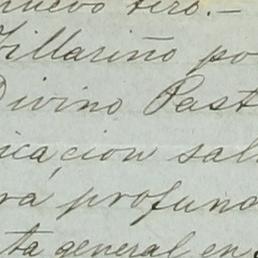 nuevo tiro.—
Villariño po
Divino Past
icacion sal
ra profund
ta general en